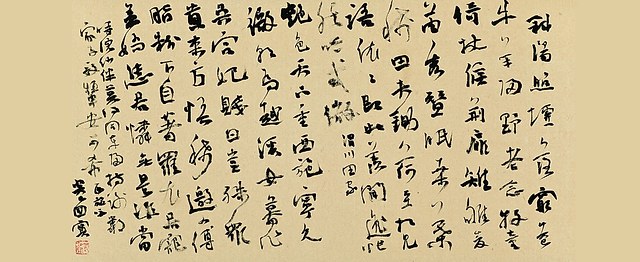 斜陽照墟落窮巷
牛羊歸野老念牧童
倚杖候荊扉雉雊麥
苗秀蠶眠桑葉
稀田夫荷鋤至相見
語依依即此羨閒逸悵
然吟式微 渭川田家
艷色天下重西施寧久
微朝為越溪女暮作
吳宮妃賤日豈殊眾
貴來方悟稀邀人傅
脂粉不自著羅衣君寵
益嬌態君憐無是非當
時浣紗伴莫得同車歸持謝鄰
家子效顰安可希